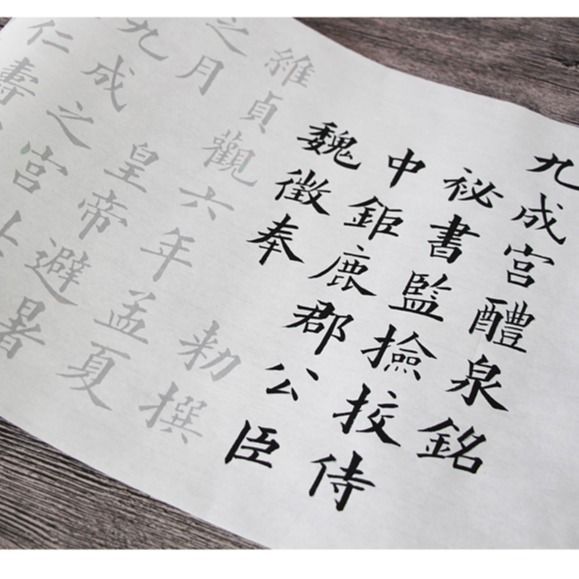 九成宮醴泉銘
祕書監撿挍侍
中鉅鹿郡公臣
魏徵奉 勅撰
維貞觀六年孟夏
之月 皇帝避暑
九成之宮
仁壽